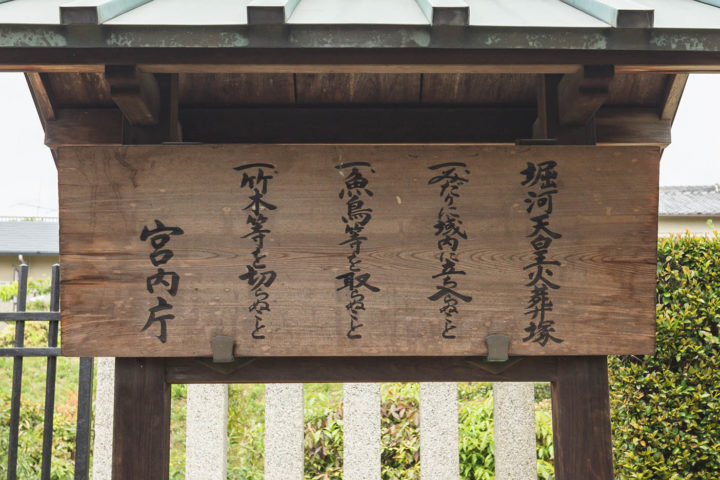 堀河天皇火葬塚
一みだりに域内に立ち入らぬこと
一魚鳥等を取らぬこと
一竹木等を切らぬこと
宮内庁